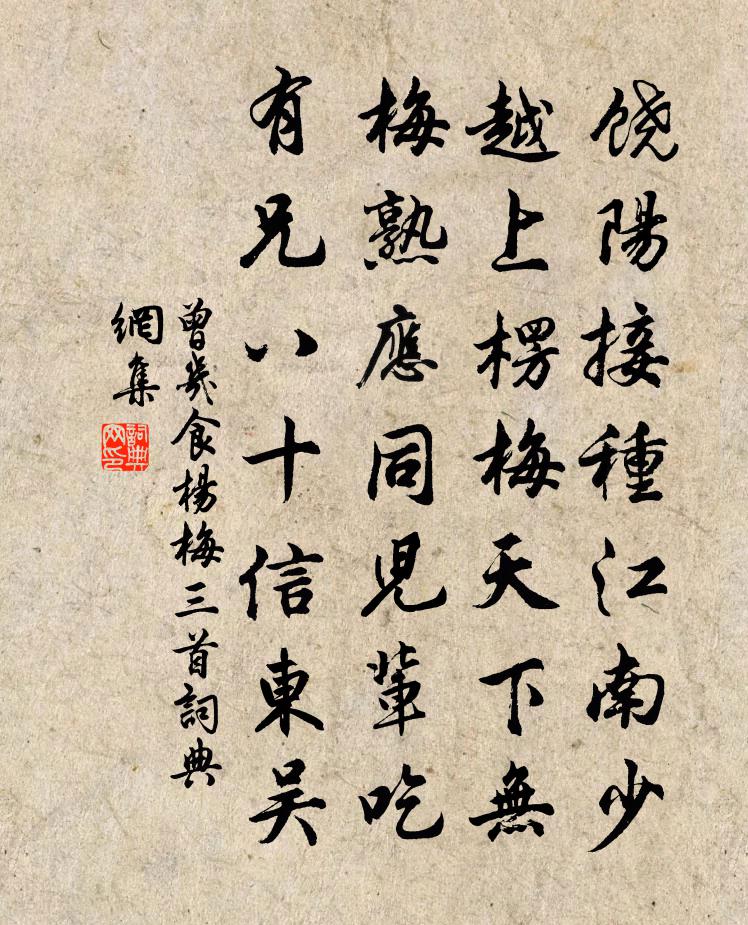 饶陽接種江南少
越上楞梅天下無
梅熟應同兒輩吃
有兄八十信東吴
曾幾食楊梅三首詞典
網集
詞典
网印